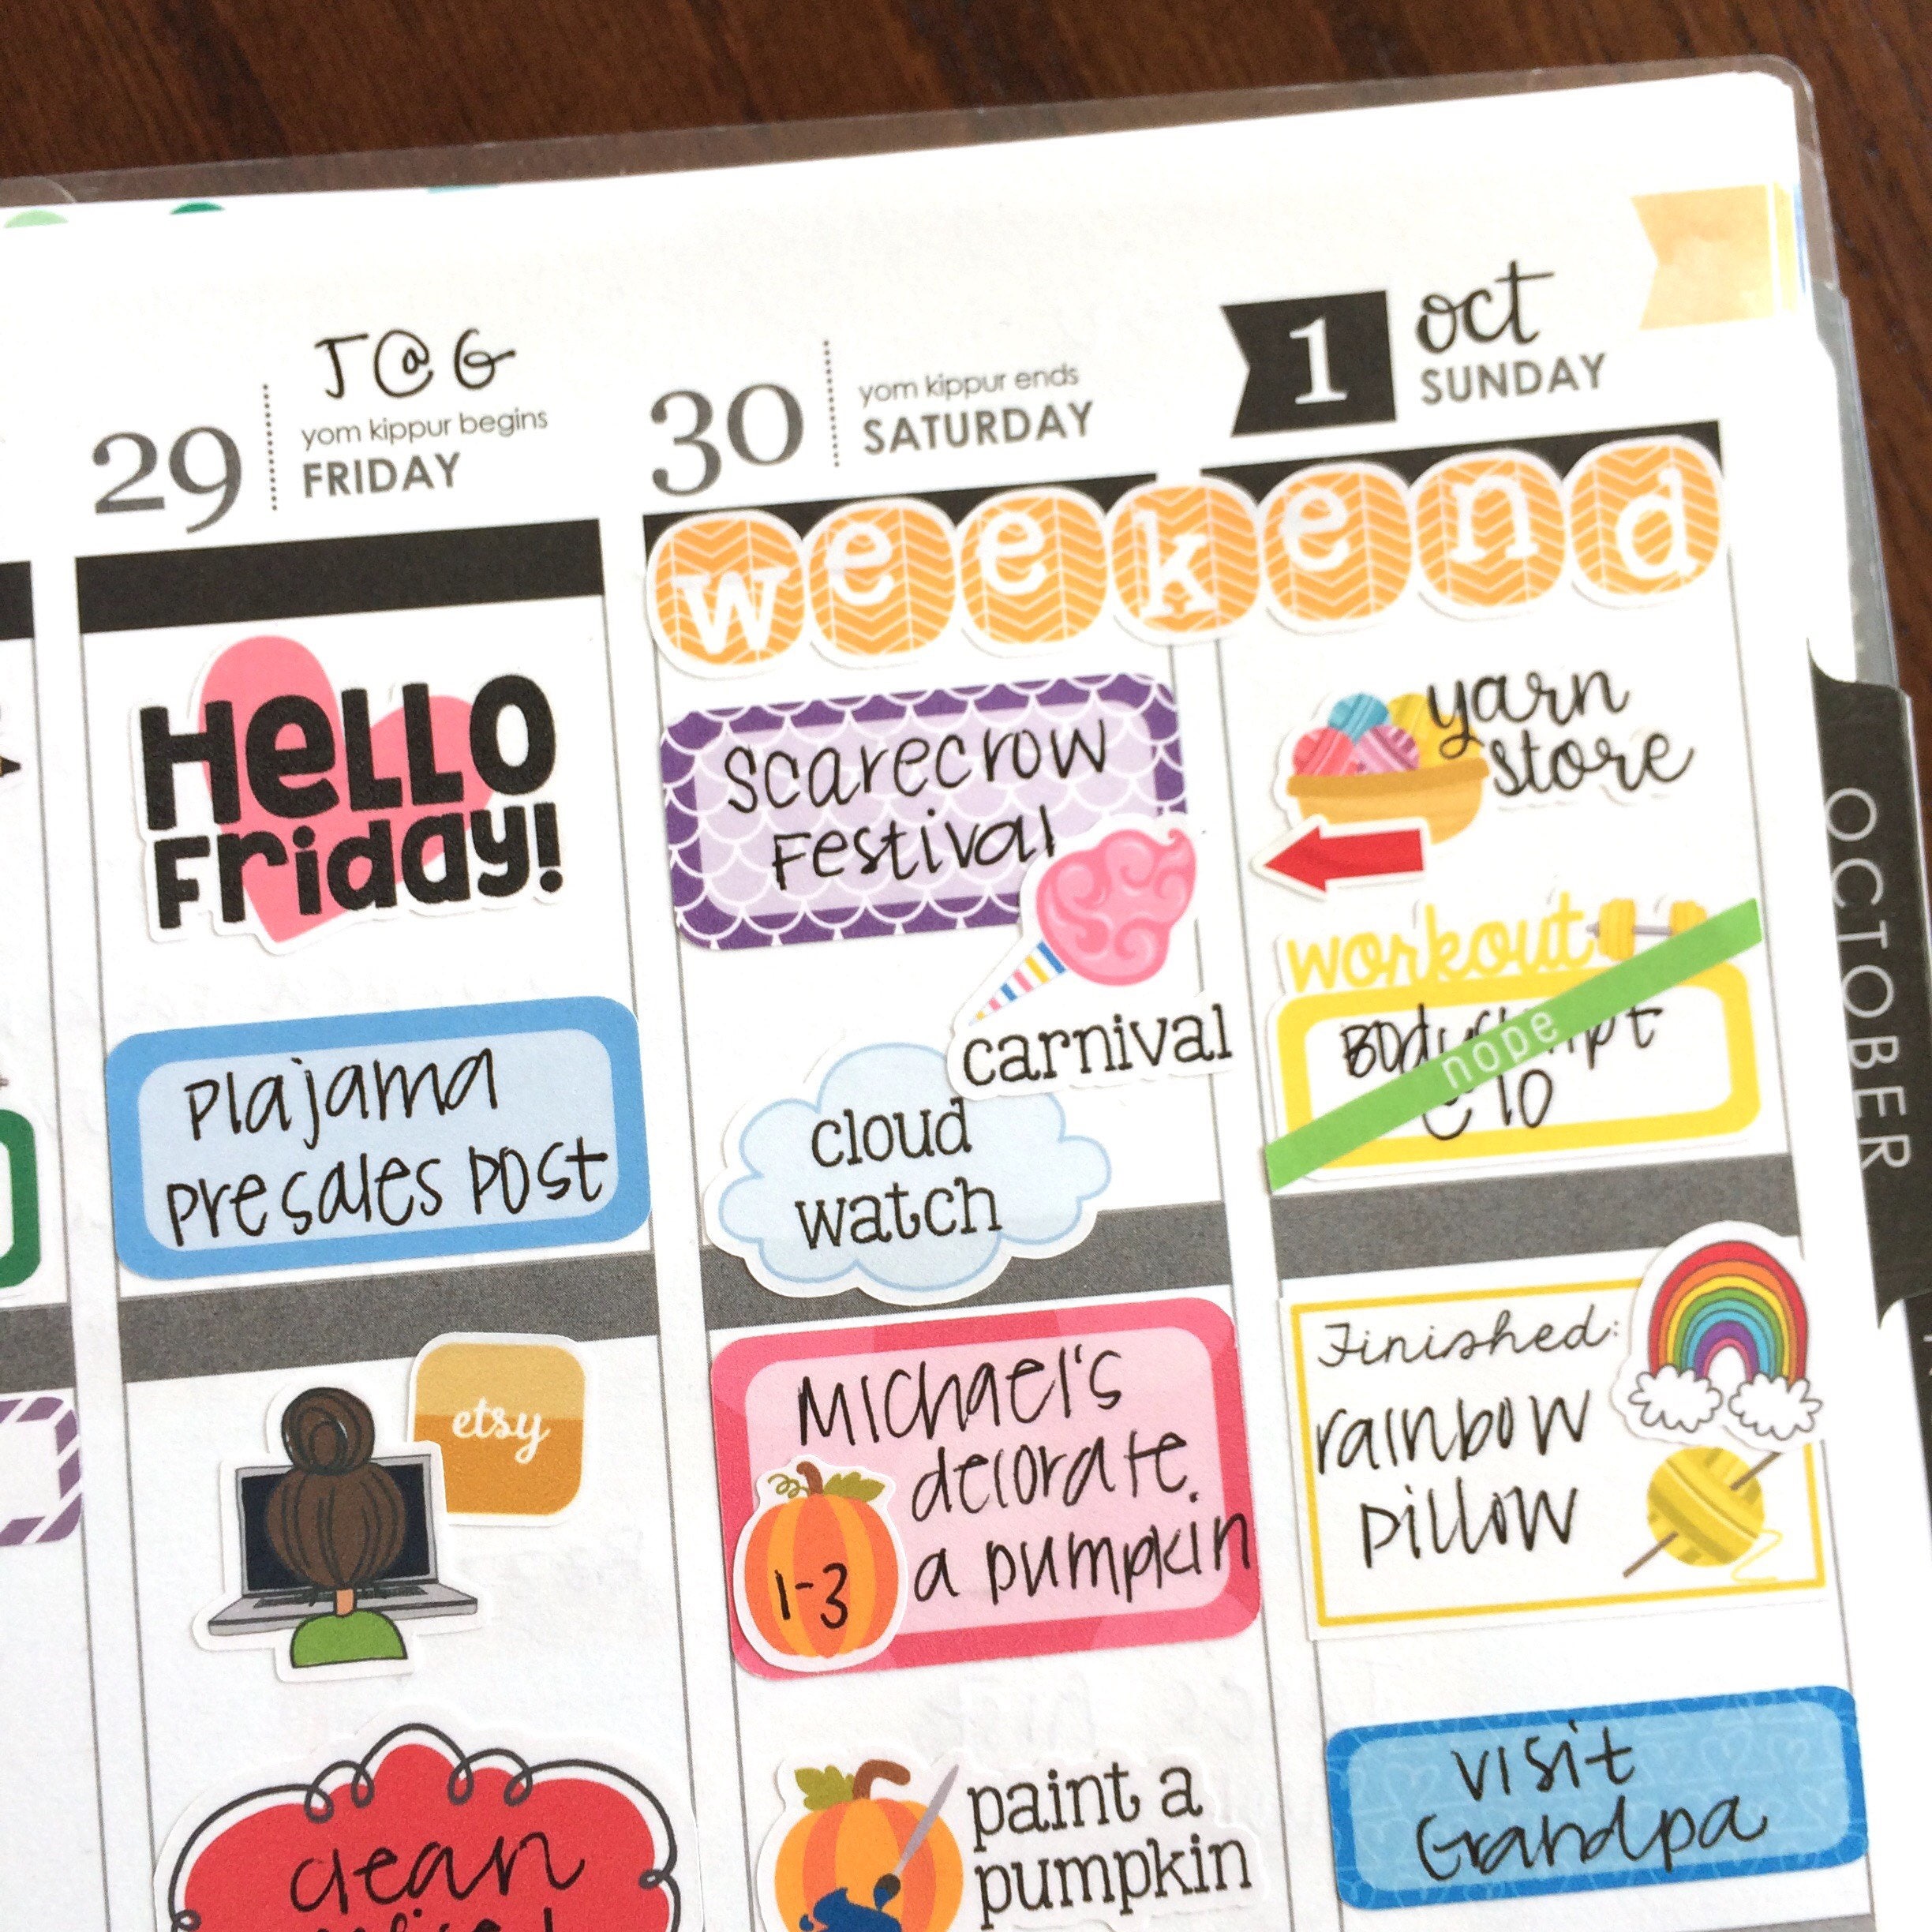 J @ G
29
yom kippur begins
FRIDAY
Hello
Friday!
Plajama
presales post
etsy
clean
30
yom kippur ends
SATURDAY
weekend
Scarecrow
Festival
carnival
cloud
watch
Michael's
decorate
a pumpkin
1-3
paint a
pumpkin
1
oct
SUNDAY
yarn
store
workout
nope
@ 10
Finished:
rainbow
pillow
visit
Grandpa
OCTOBER